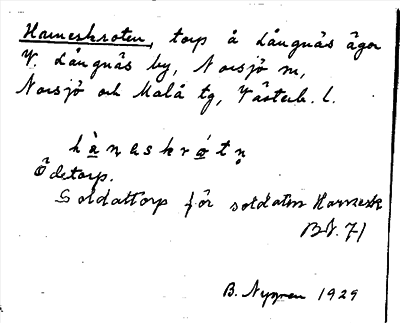 Harneskroten, torp å Långnäs ägor
V. Långnäs by, Norsjö sn,
Norsjö och Malå tg, Västerb. l.
hà̱ṇeskró̱tṇ
Ödetorp.
Soldattorp för soldaten Harnesk
B.N. 71
B. Nygren 1929